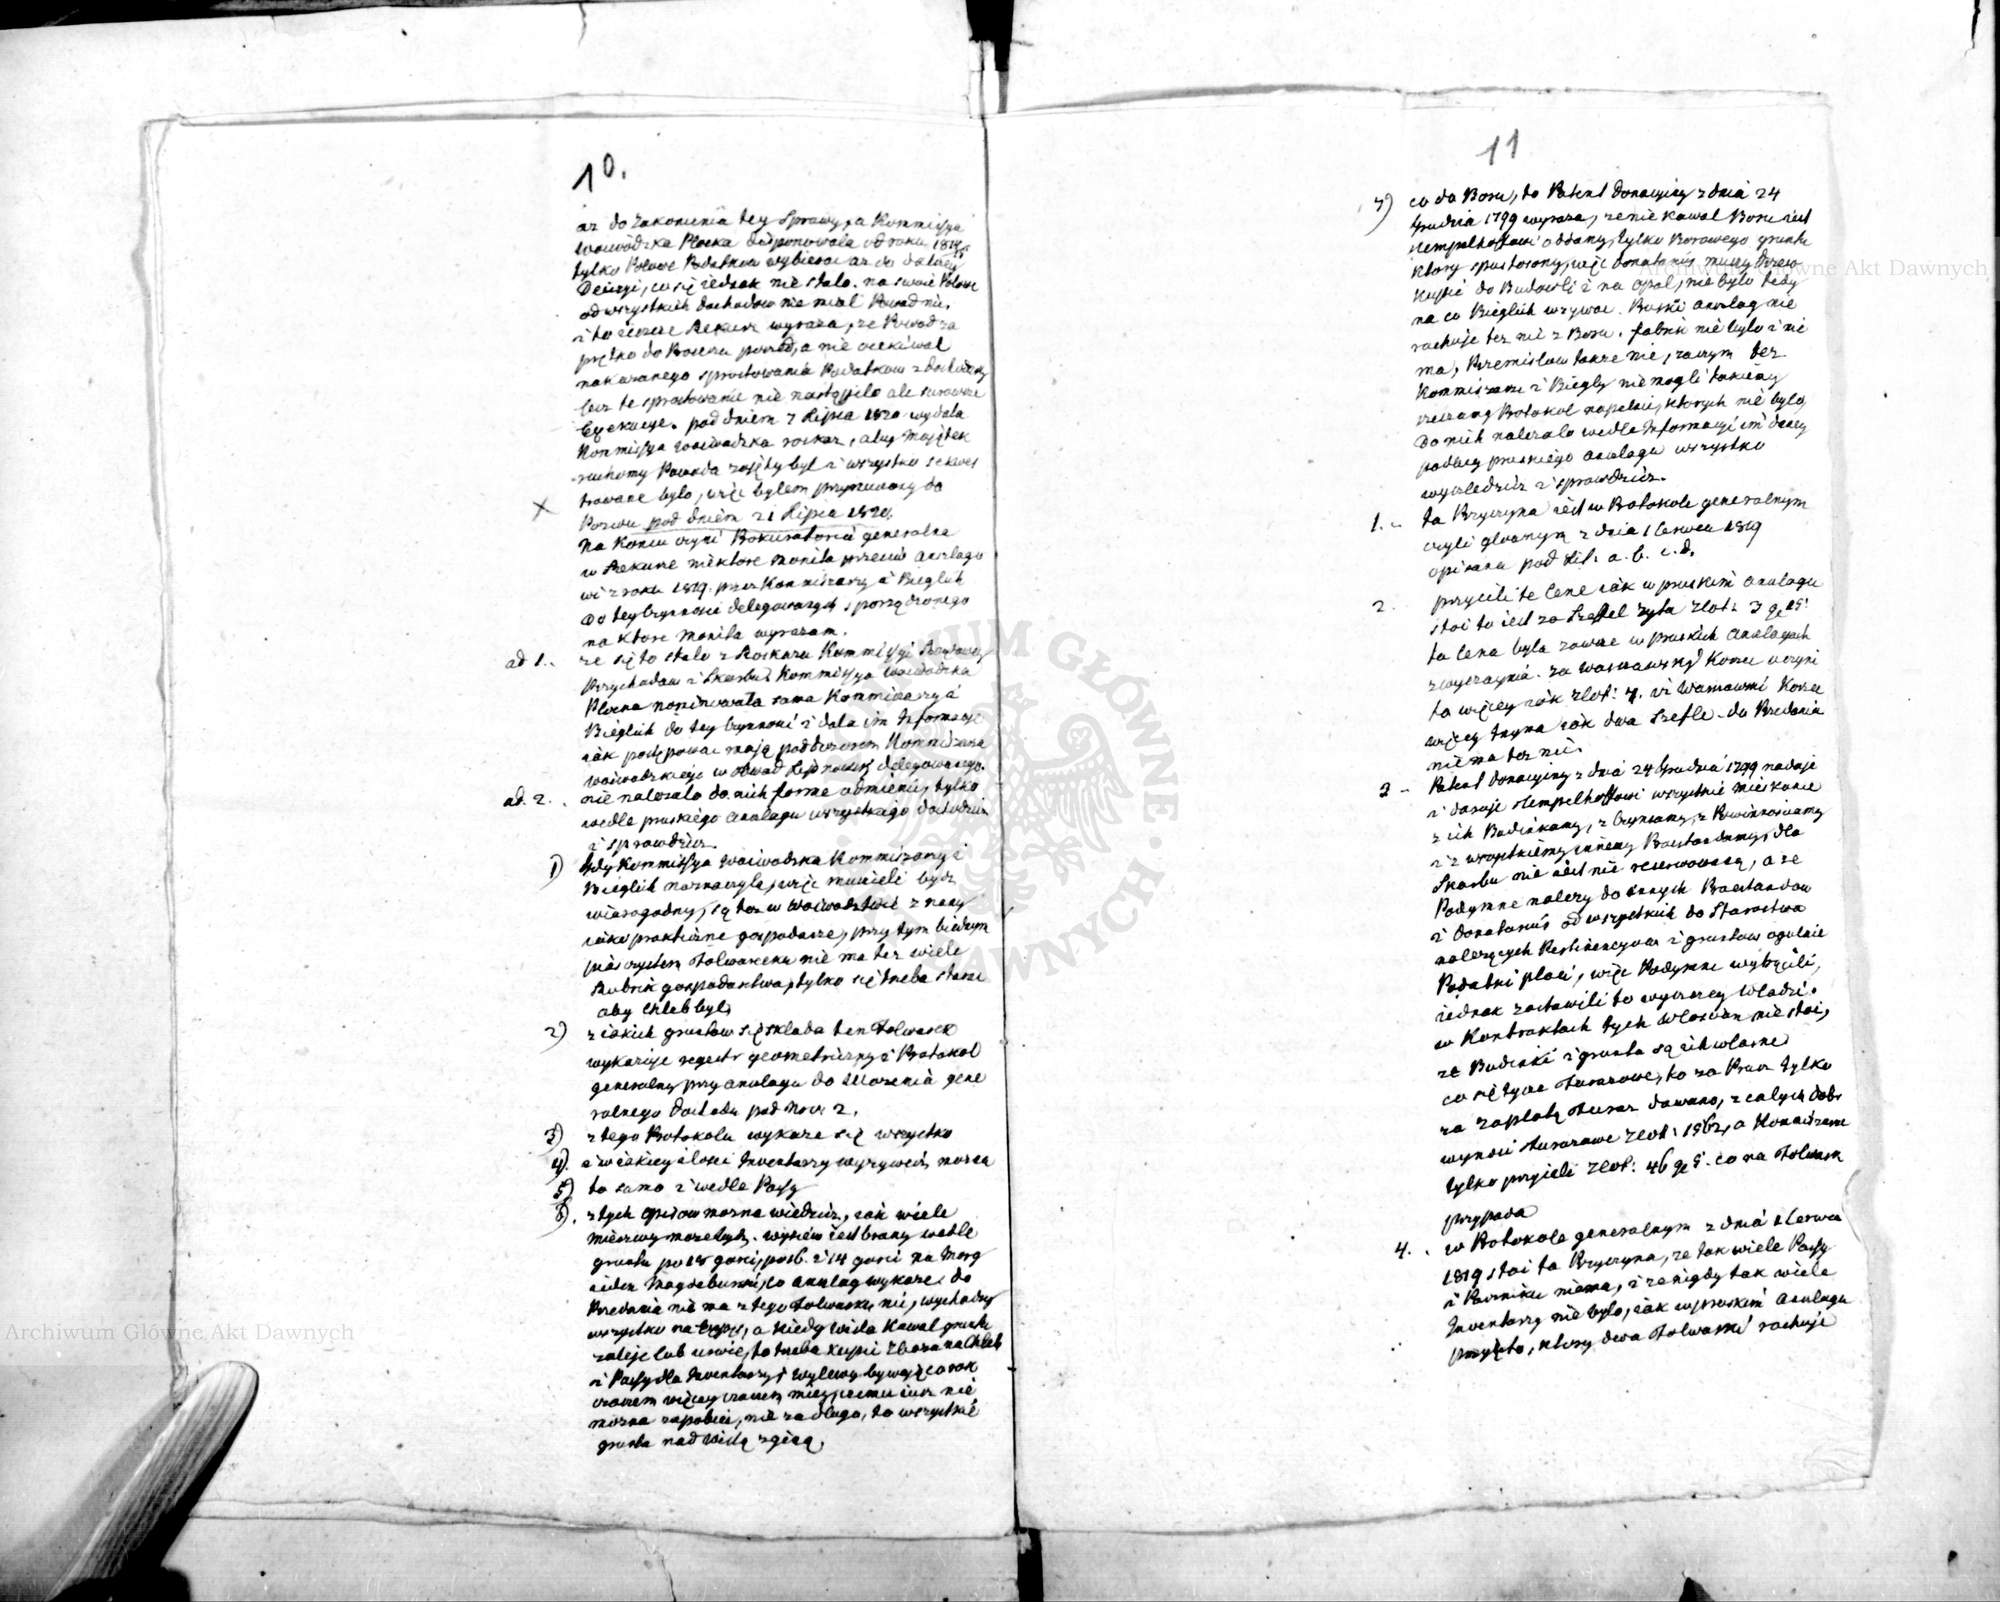 10.
az do Zakonienia tey Sprawy, a Kommissya
Woiwodzka Plocka dysponowala od roku
tylko Polowe Podatkow wybierac az do dalszey
Decizyi, co się iednak nie stalo. na swoie Polowe
od wszystkich dochodow nie mial Powod nic.
i to ieszcze Rekurs wyraza, ze Powod za
prętko do Procesu poszed, a nie oczekiwal
nakazanego sprostowania Podatkow z dochodem
lecz te sprostowanie nie nastąpilo ale surowsze
Exekucye. pod dniem 7 Lipca 1820 wydala
Kommissya Woiwodzka roskaz, aby Maiątek
ruchomy Powoda zaięty byl i wszystko sekwes
trowane bylo, więc bylem przymuszony do
X
Pozwu pod dniem 21 Lipca 1820.
Na Koncu czyni Prokuratoria generalna
w Rekursie niektore Monita przeciw Anslago
wi z roku 1819. przez Kommissarzy i Bieglich
do tey czynnosci delegowanych sporządzonego
na ktore Monita wyrazam.
ad 1.. ze się to stalo z Roskazu Kommissyi Rządowey
Przychodow i Skarbu. Kommissya Woiwodzka
Plocka nominowala sama Kommissarzy i
Bieglich do tey czynnosci i dala im Informacye
iak postępowac maią pod dozorem Kommissarza
woiwodzkiego w Obwod Lipnowsky delegowanego.
ad. 2.. nie nalezalo do nich forme odmienic, tylko
wedle pruskiego Anslagu wszystkiego dochodzic
i sprawdzic.
1) Gdy Kommissya Woiwodzka Kommissarzy i
Bieglich naznaczyla, więc musieli bydz
wiarogodny, są tez w Woiwodztwie znany
iako prakticzne gospodarze, przy tym biednym
piasczystem Folwarczku nie ma tez wiele
Rubrik gospodarstwa, tylko się trzeba starac
aby Chleb byl.
2) z iakich gruntow się sklada ten Folwarek
wykazuie regestr geometriczny i Protokol
generalny przy Anslagu do Ulozenia gene
ralnego dochodu pod Nrem 2.
3) z tego Protokolu wykaze się wszystko
4). a w iakiey ilosci Inventarzy wyzywic mozna
5) to samo i wedle Paszy
6). z tych opisow mozna wiedziec, iak wiele
mierzwy moze bydz. wysiew iest brany wedle
gruntu po 18 garcy, po 16. i 14 garci na Morg
ieden Magdeburski, co Anslag wykaze. do
Przedania nie ma z tego Folwarku nic, wychodzy
wszystko na , a kiedy Wisla Kawal gruntu
zaleje lub urwie, to trzeba kupic Zboza na Chleb
i Paszy dla Inventarzy, wylewy bywaią co rok
czasem więcey czasem mniey, czemu iuz nie
mozna zapobiec, nie za dlugo, to wszystkie
grunta nad Wislą zginą.
11
7) co do Boru, to Patent donacyiny z dnia 24
Grudnia 1799 wyraza, ze nie kawal Boru iest
Stempelhoffowi oddany, tylko Borowego gruntu
ktory spustoszony, więc donatarius muszy drzew
kupic do Budowli i na opal, nie bylo tedy
na co Bieglich wzywac. Pruski Anslag nie
rachuje tez nic z Boru. fabrik nie bylo i nie
ma, Przemislow takze nie, zaczym tez
Kommissarz i Biegly nie mogli takiemy
rzeczamy Protokol napelnic, ktorych nie bylo,
do nich nalezalo wedle Informacyi im daney
podlug pruskiego Anslagu wszystko
wysledzic i sprawdzic.
1. .. ta Przyczyna iest w Protokole generalnym
czyli glownym z dnia 1 Czerwca 1819
opisana pod Lit. a. b. c. d.
2. przyieli te Cene iak w pruskim Anslagu
stoi to iest za Szeffel Zyta Zlot. 3 g 15.
ta Cena byla zawsze w pruskich Anslagach
zwyczayna. za warszawsky Korzec uczyni
to więcey iak Zlot: 7. bo Warszawski Korzec
więcey trzyma iak dwa Szefle. do Przedania
nie ma tez nic.
3 – Patent donacyiny z dnia 24 Grudnia 1799 nadaje
i daruje Stempelhoffowi wszystkie Mieskance
z ich Budinkamy, z Czynszamy, z Powinnosciamy
i z wszystkiemy innemy Praestandamy, dla
Skarbu nie iest nic reserwowaną, a ze
Podymne nalezy do innych Praestandow
i donatarius od wszystkich do Starostwa
nalezących Pertinencyow i gruntow ogulnie
Podatki placi, więc Podymne wybącili,
iednak zostawili to wyzszey Wladzi.
w Kontraktach tych Wloscian nie stoi,
ze Budinki i grunta są ich wlasne
co się tycze Tlusarowe, to za Prace tylko
za zaplatę dawano, z calych dobr
wynosi Zlot: 1962, a Kommissarze
tylko przyieli Zlot: 46 g 5. co na Folwark
przypada
4. . w Protokole generalnym z dnia 1 Czerwca
1819 stoi ta Przyczyna, ze tak wiele Paszy
i Pasniku niema, i ze nigdy tak wiele
Inventarzy nie bylo, iak w pruskim Anslagu
przyięto, ktory dwa Folwarki rachuje